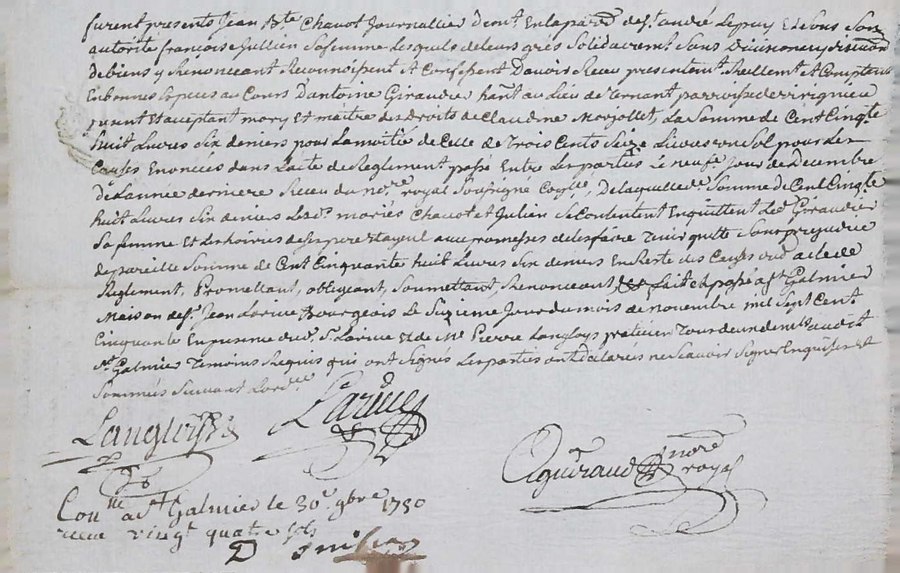 furent presents Jean Bte Chavot Journallier demt. En la paroe de st. andré Le puy, Et de sous Son
autorité francoise Jullien Sa femme Lesquels de leurs grés Solidairemt. Sans Division ny discution
de biens y Renoncant Reconnoissent Et Confessent Davoir Reçu presentemt. Réellemt. Et Comptant
En bonnes Especes au Cours D'antoine Giraudier hant. au Lieu de Ternant parroisse de
present Et acceptant mary Et maitre des droits de Claudine Marjollet, La Somme de Cent Cinqte
huit Livres Six deniers pour La moitié de Celle de Trois Cents Seize Livres un Sol pour Les
Causes Enoncées dans L'acte de Reglement passé Entre Les parties Le neufe. Jour de Decembre
De L'année derniere Recu du nore. royal Soussigné De Laquelle de. Somme de Cent Cinqte
huit Livres Six deniers Les ds. mariés Chavot et Julien Se Contentent En quittent Led. Giraudier
Sa femme Et Les hoiries de Ses pere Et ayeul aux promesses de les faire Tenir quitte Sans prejudice
de pareille Somme de Cent Cinquante huit Livres Six deniers En Reste des Causes dud. acte de
Reglement, Promettant, obligeant, Soumettant, Renonceant, fait Et passé a st. Galmier
Maison de sr. Jean Larive Bourgeois Le Jour du mois de novembre mil Sept Cent
Cinquante En presence dud. sr. Larive Et de Me. Pierre Langlois praticien audit
st. Galmier Temoins Requis qui ont Signés Les parties ont declarés ne Scavoir Signer Enquises Et
Sommées Suivant L'ordce.
Langlois Larive
nore. royal
Conlle. a st. Galmier le 30e. 9bre 1750
recu vingt quatre sols